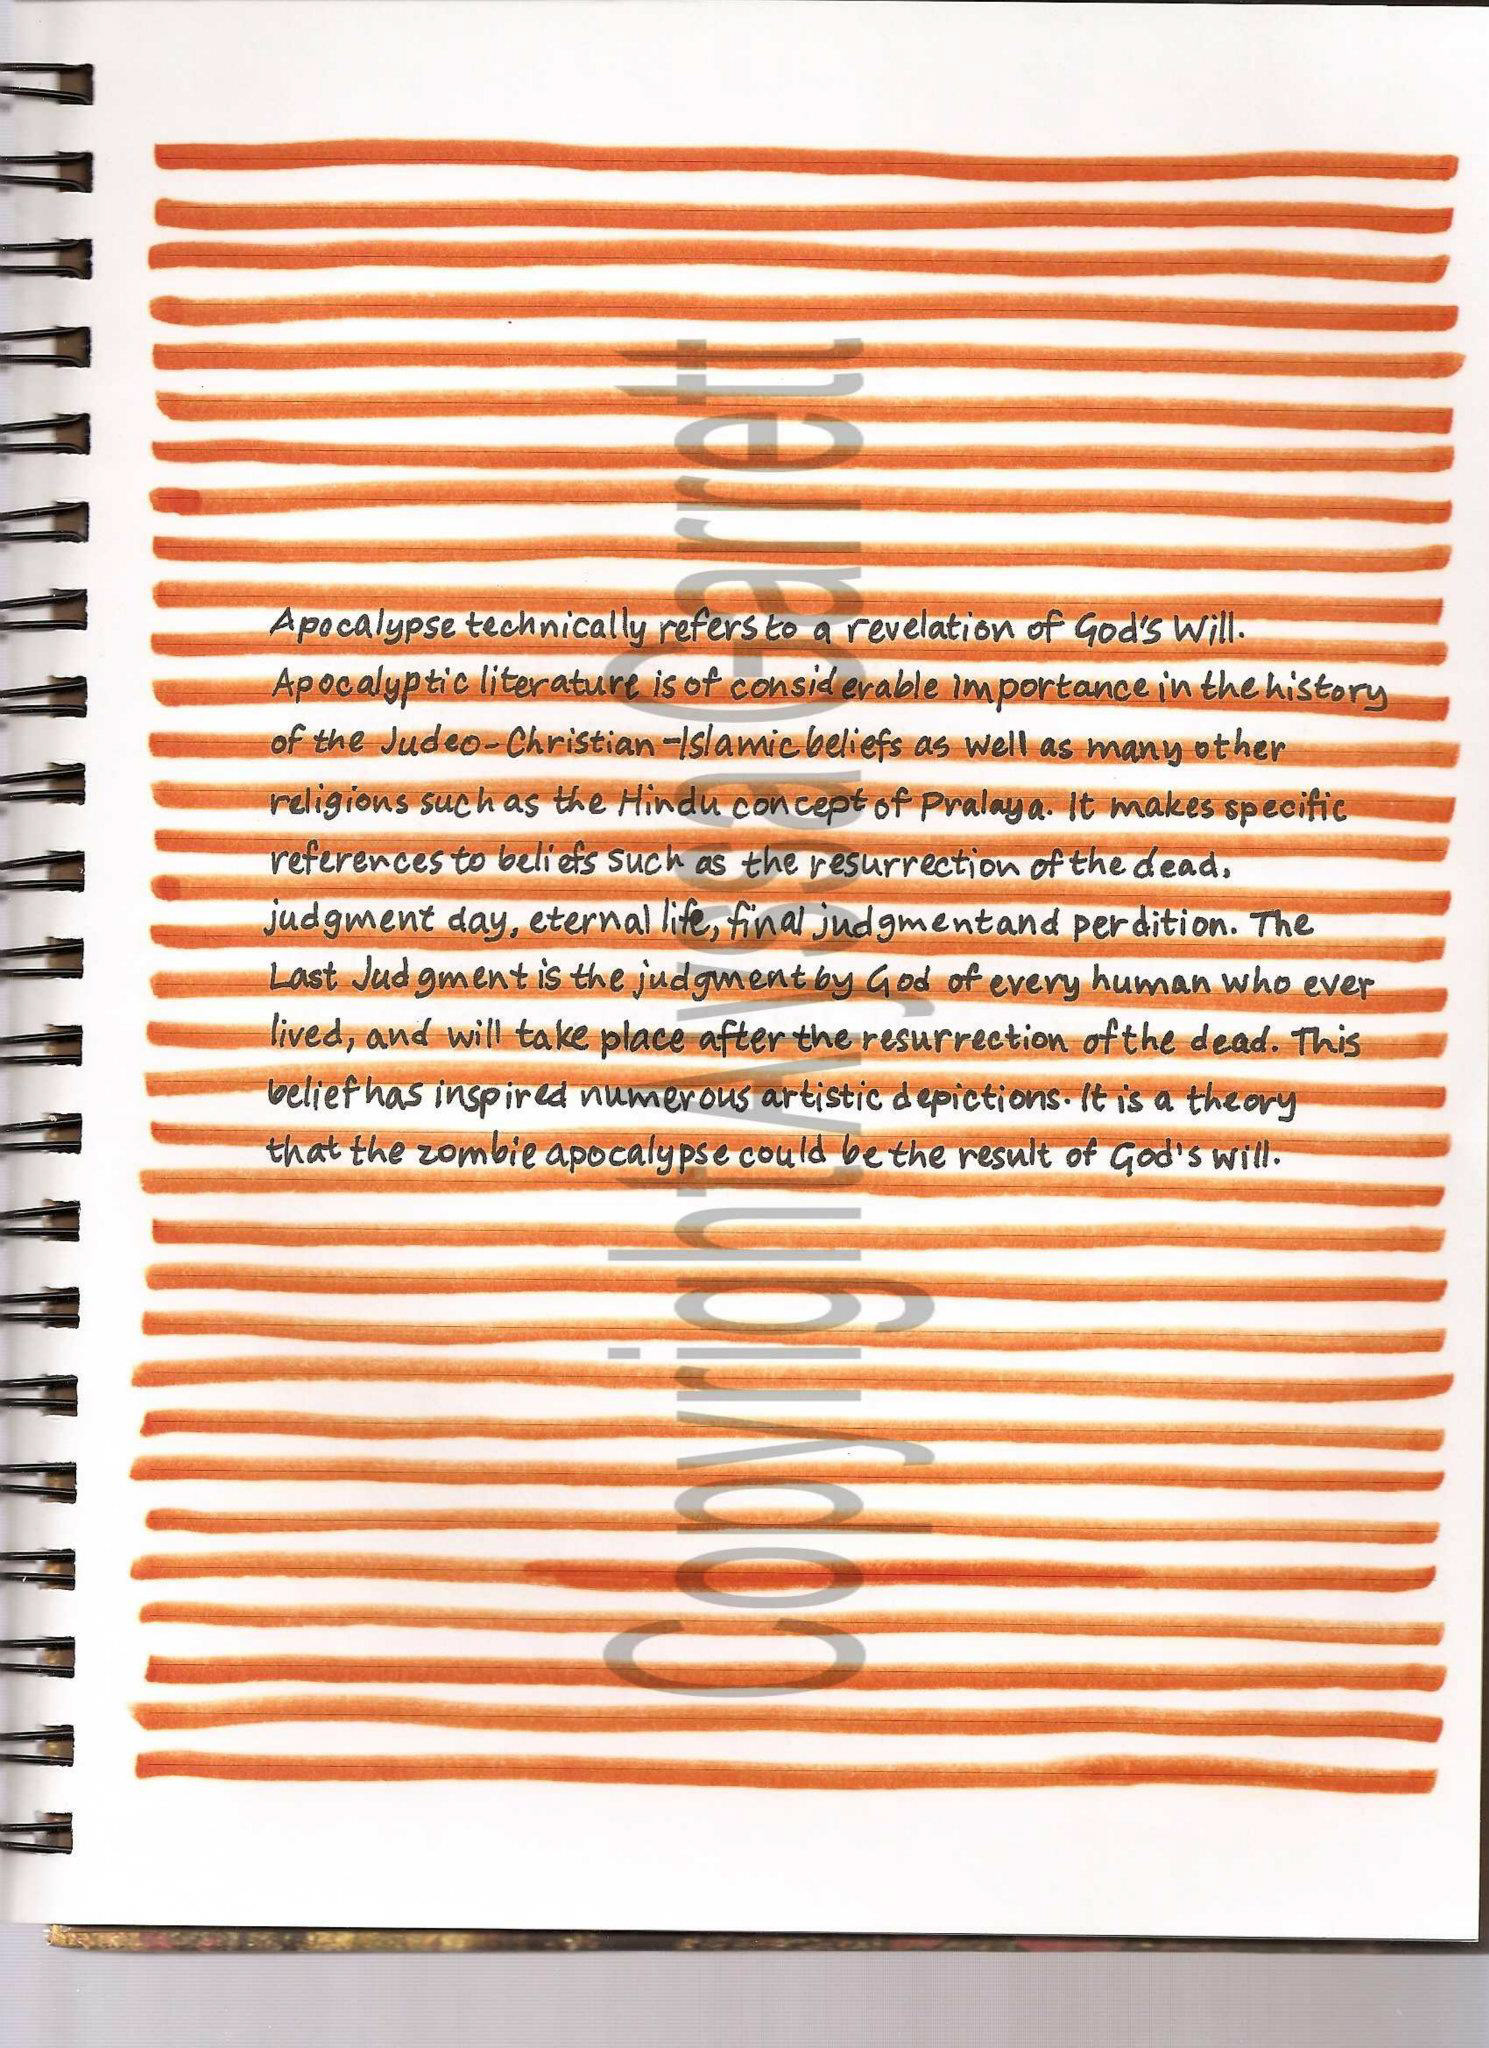 Apocalypse technically refers to a revelation of God's Will.
Apocalyptic literature is of considerable importance in the history
of the Judeo-Christian-Islamic beliefs as well as many other
religions such as the Hindu concept of Pralaya. It makes specific
references to beliefs such as the resurrection of the dead,
judgment day, eternal life, final judgment and perdition. The
Last Judgment is the judgment by God of every human who ever
lived, and will take place after the resurrection of the dead. This
belief has inspired numerous artistic depictions. It is a theory
that the zombie apocalypse could be the result of God's will.
Copyright Alyssa Garrett